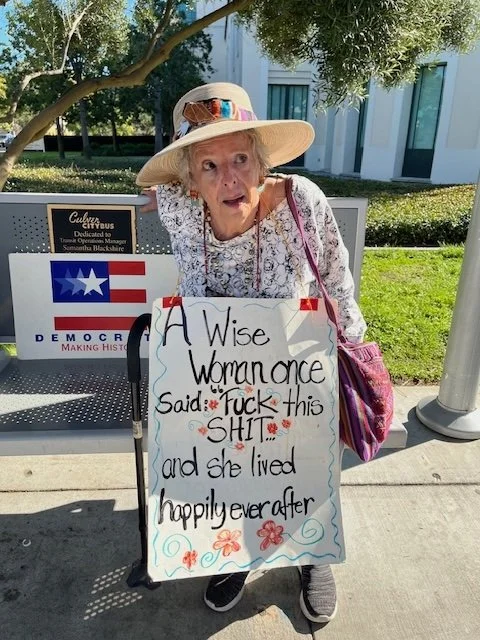 Culver
CITYBUS
Dedicated to
Transit Operations Manager
Samantha Blackshire
DEMOCRAT
MAKING HISTO
A Wise
Woman once
Said: "Fuck this
SHIT"...
and she lived
happily ever after